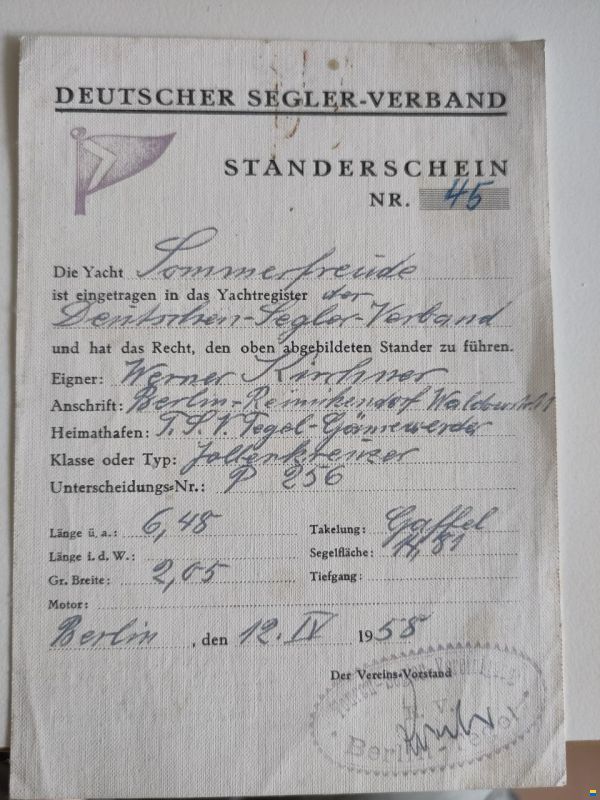 DEUTSCHER SEGLER-VERBAND
STANDERSCHEIN
NR. 45
Die Yacht Sommerfreude
ist eingetragen in das Yachtregister der
Deutschen-Segler-Verband
und hat das Recht, den oben abgebildeten Stander zu führen.
Eigner: Werner Kirchner
Anschrift: Berlin-Reinikendorf
Heimathafen: T.S.V. Tegel-Gänsewerder
Klasse oder Typ: Jollenkreuzer
Unterscheidungs-Nr.: P 256
Länge ü. a.: 6,48
Takelung: Gaffel
Länge i. d. W.:
Segelfläche: 14,81
Gr. Breite: 2,05
Tiefgang:
Motor:
Berlin, den 12. IV 1958
Der Vereins-Vorstand
e. V.
Berlin-Tegel